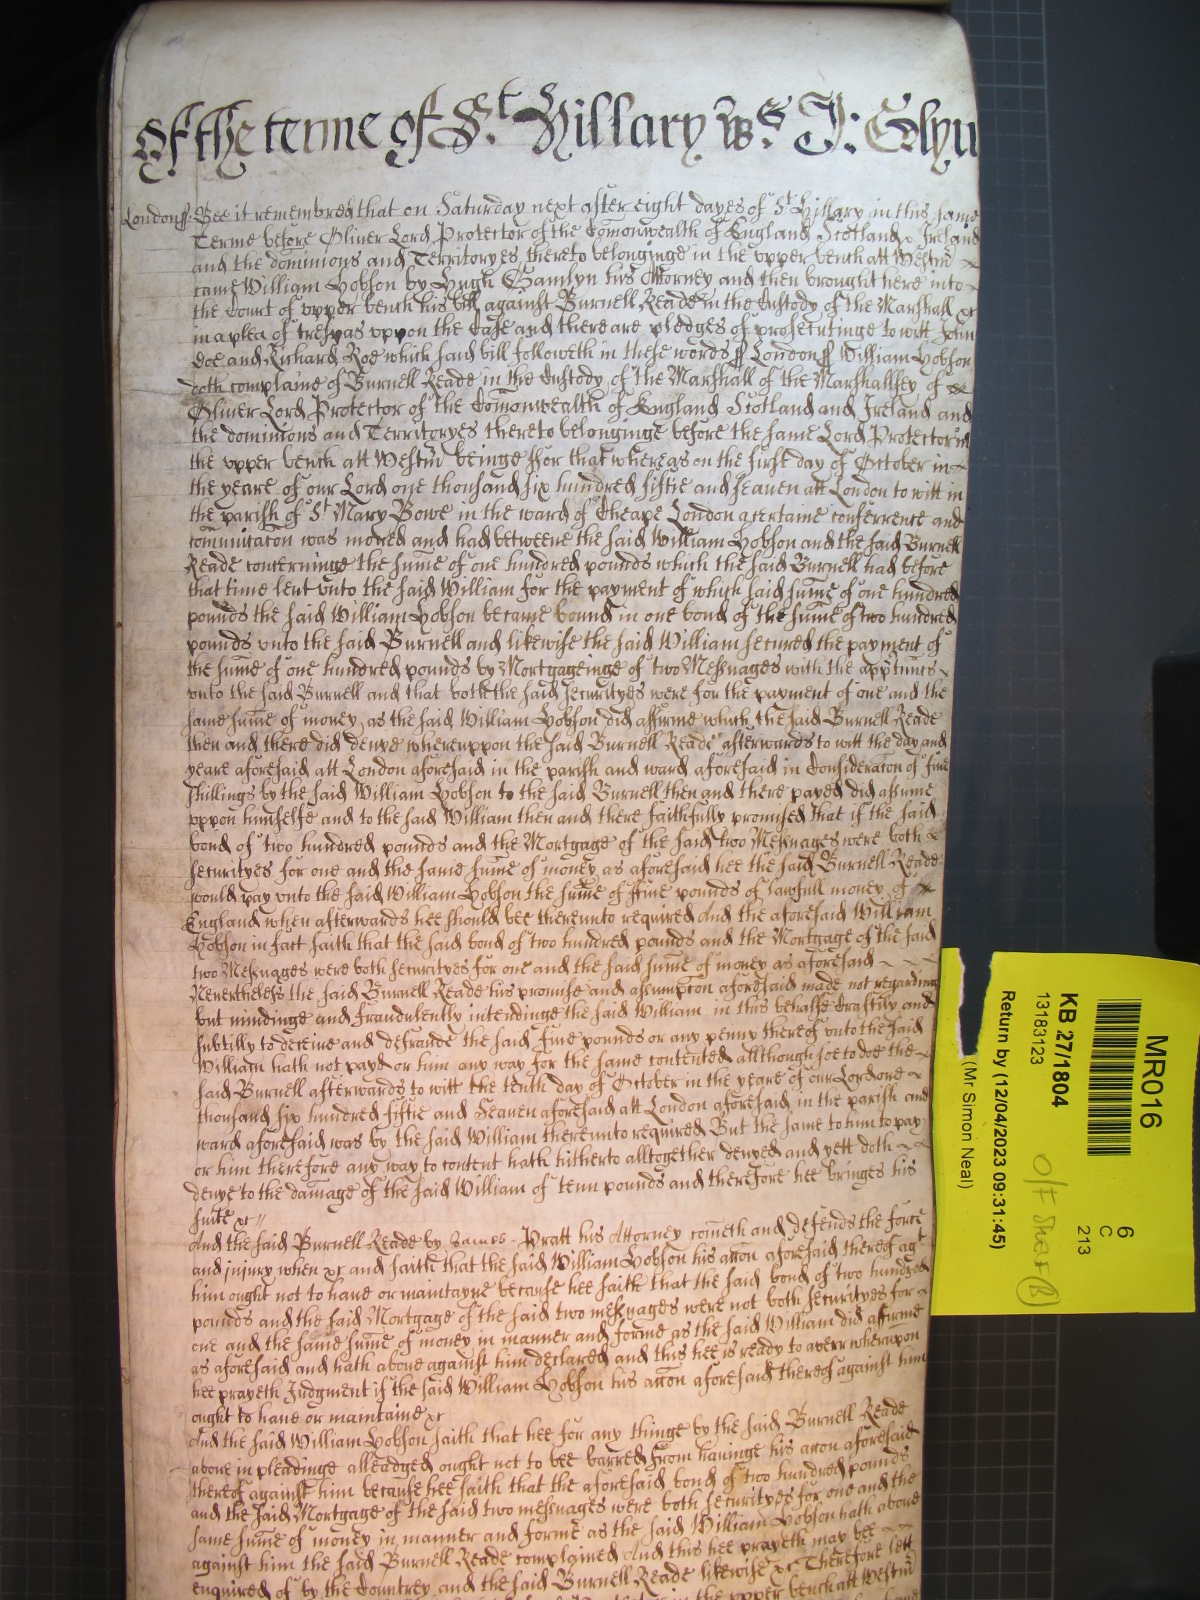 Of the terme of St. Hillary ws. J: Glyn
Londonss. Bee it remembred that on Saturday next after eight dayes of St Hillary in this same
Terme before Oliver Lord Protector of the Comonwealth of England Scotland & Ireland
and the dominions and Territoryes thereto belonginge in the upper bench att Westmr
came William Hobson by Hugh Hamlyn his Attorney and then brought here into
the Court of upper bench his bill against Burnell Reade in the Custody of the Marshall &c
in a plea of trespas uppon the Case and there are pledges of prosecutinge to witt John
Doe and Richard Roe which said bill followeth in these words ss Londonss William Hobson
doth complaine of Burnell Reade in the Custody of the Marshall of the Marshallsey of
Oliver Lord Protector of the Comonwealth of England Scotland and Ireland and
the dominions and Territoryes thereto belonginge before the same Lord Protector in
the upper bench att Westmr beinge ffor that whereas on the first day of October in
the yeare of our Lord one thousand six hundred fiftie and seauen att London to witt in
the parish of St Mary Bowe in the ward of Cheape London a certaine conferrence and
comunicaton was moved and had betweene the said William Hobson and the said Burnell
Reade concerninge the sume of one hundred pounds which the said Burnell had before
that time lent unto the said William for the payment of which said sume of one hundred
pounds the said William Hobson became bound in one bond of the sume of two hundred
pounds unto the said Burnell and likewise the said William secured the payment of
the sume of one hundred pounds by Mortgageinge of two Messuages with the apptunts
unto the said Burnell and that both the said securityes were for the payment of one and the
same sume of money as the said William Hobson did affirme which the said Burnell Reade
then and there did denye whereuppon the said Burnell Reade afterwards to witt the day and
yeare aforesaid att London aforesaid in the parish and ward aforesaid in Consideraton of fiue
shillings by the said William Hobson to the said Burnell then and there payed did assume
uppon himselfe and to the said William then and there faithfully promised that if the said
bond of two hundred pounds and the Mortgage of the said two Messuages were both
securityes for one and the same sume of money as aforesaid hee the said Burnell Reade
would pay unto the said William Hobson the sume of ffiue pounds of lawfull money of
England when afterwards hee should bee thereunto required And the aforesaid William
Hobson in fact saith that the said bond of two hundred pounds and the Mortgage of the said
two Messuages were both securityes for one and the said sume of money as aforesaid
Neverthelesse the said Burnell Reade his promise and assumpton aforesaid made not regarding
but mindinge and fraudulently intendinge the said William in this behalfe Craftily and
subtilly to deceiue and defraude the said fiue pounds or any penny thereof unto the said
William hath not payd or him any way for the same contented allthough soe to doe the
said Burnell afterwards to witt the tenth day of October in the yeare of our Lord one
thousand six hundred fiftie and Seauen aforesaid att London aforesaid in the parish and
ward aforesaid was by the said William thereunto required But the same to him to pay
or him therefore any way to content hath hitherto alltogether denyed and yett doth
denye to the damage of the said William of tenn pounds and therefore hee bringes his
suite &c
And the said Burnell Reade by James Pratt his Attorney cometh and defends the force
and injury when &c and saith that the said William Hobson his accon aforesaid thereof agt
him ought not to haue or maintayne because hee saith that the said bond of two hundred
pounds and the said Mortgage of the said two messuages were not both securityes for
one and the same sume of money in manner and forme as the said William did affirme
as aforesaid and hath aboue against him declared and this hee is ready to averr whereupon
hee prayeth Judgment if the said William Hobson his accon aforesaid thereof against him
ought to haue or maintaine &c
And the said William Hobson saith that hee for any thinge by the said Burnell Reade
aboue in pleadinge alleadged ought not to bee barred from hauinge his accon aforesaid
thereof against him because hee saith that the aforesaid bond of two hundred pounds
and the said Mortgage of the said two messuages were both securityes for one and the
same sume of money in manner and forme as the said William Hobson hath aboue
against him the said Burnell Reade complained And this hee prayeth may bee
enquired of by the Countrey and the said Burnell Reade likewise &c Therefore lett
in the upper bench att Westmr
MR016
KB 27/1804
13183123
Return by (12/04/2023 09:31:45)
(Mr Simon Neal)
6
C
213